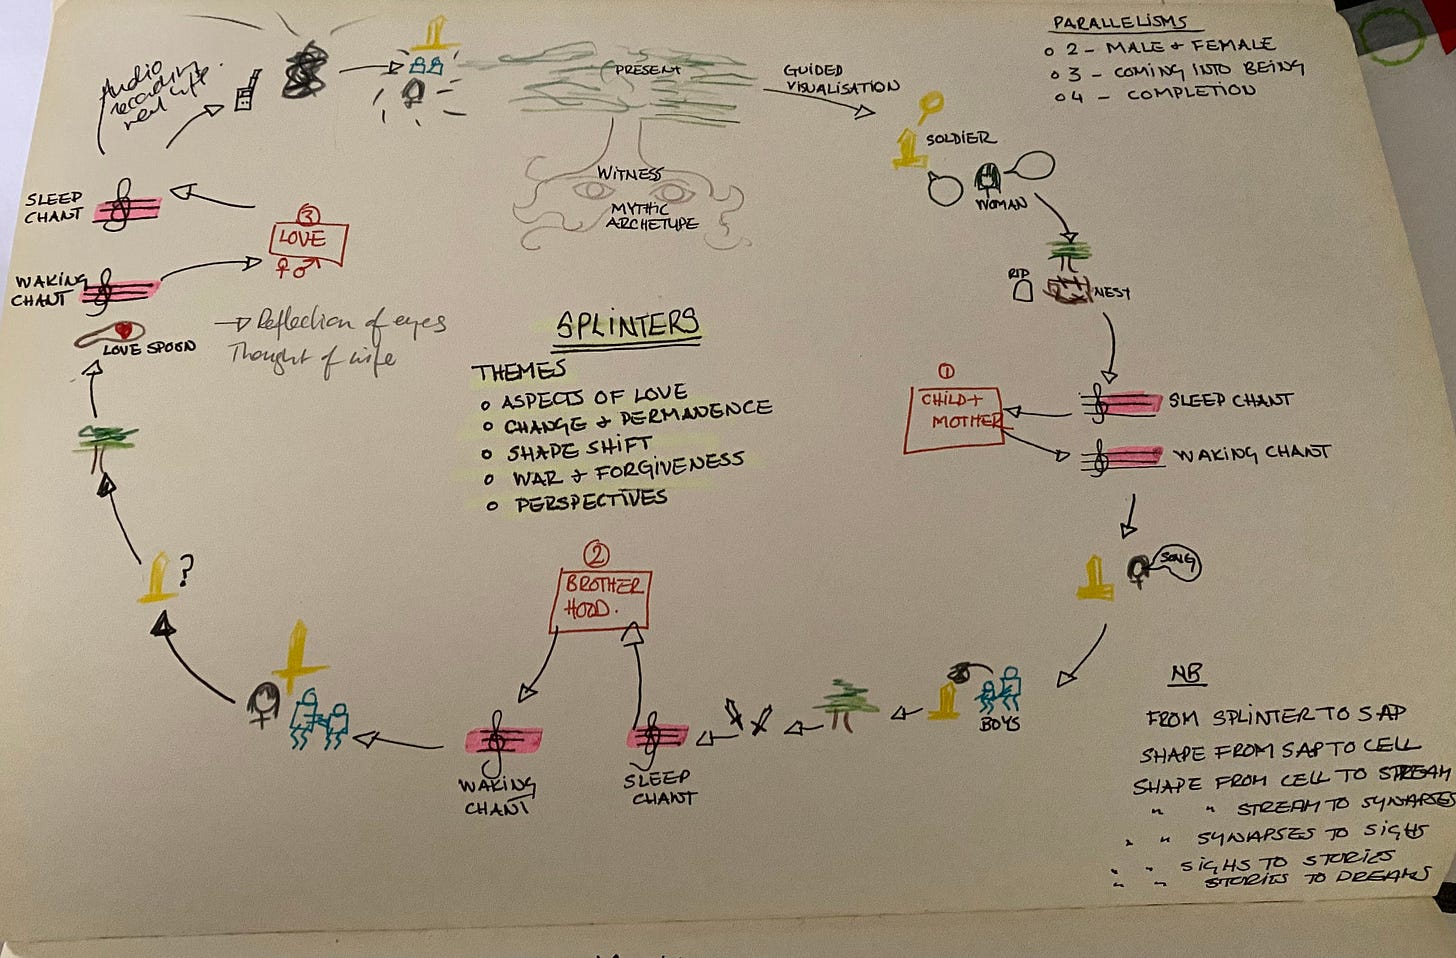 PARALLELISMS
2 - MALE & FEMALE
3 - COMING INTO BEING
4 - COMPLETION
Audio
recording
real life
PRESENT
GUIDED
VISUALISATION
SOLDIER
WOMAN
WITNESS
MYTHIC
ARCHETYPE
SLEEP
CHANT
3
LOVE
♀♂
WAKING
CHANT
LOVE SPOON
→ Reflection of eyes
Thought of wife
RIP
NEST
SPLINTERS
THEMES
o ASPECTS OF LOVE
o CHANGE & PERMANENCE
o SHAPE SHIFT
o WAR & FORGIVENESS
o PERSPECTIVES
1
CHILD +
MOTHER
SLEEP CHANT
WAKING CHANT
SONG
2
BROTHER
HOOD.
?
BOYS
WAKING
CHANT
SLEEP
CHANT
NB
FROM SPLINTER TO SAP
SHAPE FROM SAP TO CELL
SHAPE FROM CELL TO STREAM
" " STREAM TO SYNAPSES
" " SYNAPSES TO SIGHS
" " SIGHS TO STORIES
" " STORIES TO DREAMS